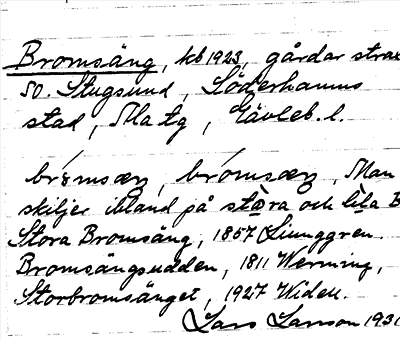 Bromsäng, kb 1923, gårdar strax
SO. Stugsund, Söderhamns
stad, Ma tg, Gävleb. l.
brómsæŋ, brómsæŋ, Man
skiljer ibland på stora och lilla B
Stora Bromsäng, 1857 Ljunggren.
Bromsängsudden, 1811 Werming,
Storbromsänget, 1927 Widell.
Lars Larsson 193